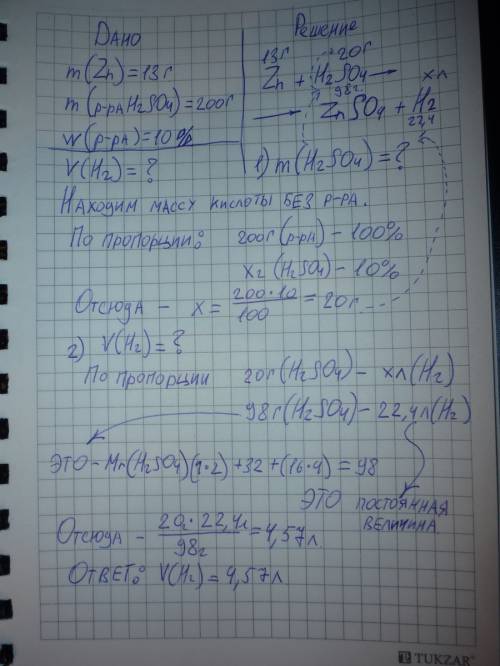 Дано
Решение
m(Zn)=13г
13г 20г
Zn + H2SO4 →
98г
xл
m(р-ра H2SO4)=200г
→ ZnSO4 + H2
22,4
w(р-ра)=10%
V(H2)=?
1) m(H2SO4)=?
Находим массу кислоты без р-ра.
По пропорции: 200г(р-ра) – 100%
xг(H2SO4) – 10%
Отсюда – x = 200·10/100 = 20г
2) V(H2)=?
По пропорции 20г(H2SO4) – xл(H2)
98г(H2SO4) – 22,4л(H2)
Это – Mr(H2SO4)(1·2)+32+(16·4)=98
Это постоянная
величина
Отсюда – 20г·22,4л/98г = 4,57л
Ответ: V(H2)=4,57л
TUKZAR